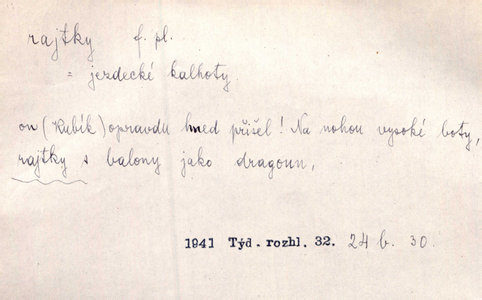 rajtky f. pl.
= jezdecké kalhoty.
on (Kubík) opravdu hned přišel! Na nohou vysoké boty,
rajtky s balony jako dragoun,
1941 Týd. rozhl. 32. 24 b. 30.